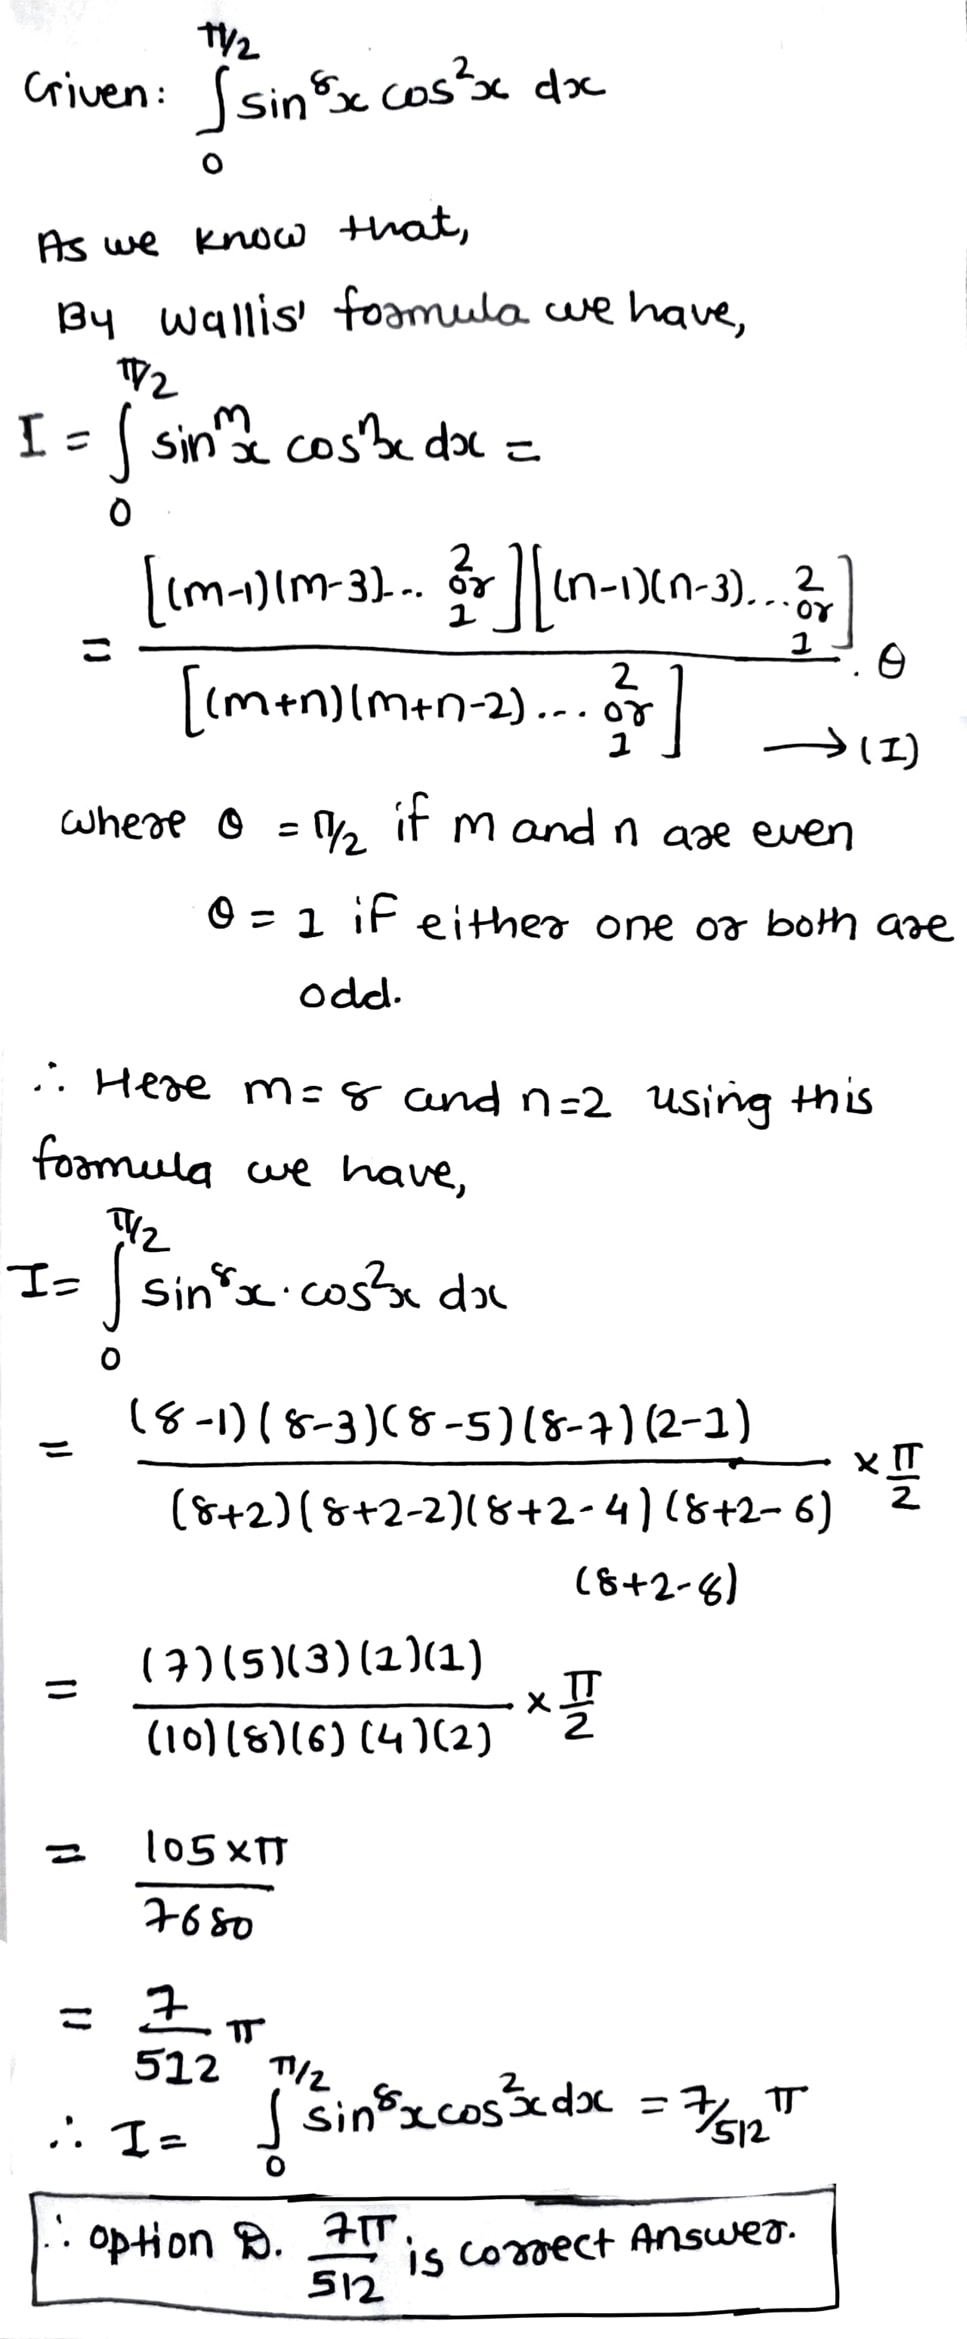 Given: ∫₀^{π/2} sin⁸x cos²x dx
As we know that,
By Wallis' formula we have,
I = ∫₀^{π/2} sinᵐx cosⁿx dx =
= [(m-1)(m-3)... 2 or 1][(n-1)(n-3)... 2 or 1] / [(m+n)(m+n-2)... 2 or 1] . θ
→ (I)
where θ = π/2 if m and n are even
θ = 1 if either one or both are
odd.
∴ Here m = 8 and n=2 using this
formula we have,
I = ∫₀^{π/2} sin⁸x · cos²x dx
= (8-1)(8-3)(8-5)(8-7)(2-1) / (8+2)(8+2-2)(8+2-4)(8+2-6)(8+2-8) × π/2
= (7)(5)(3)(1)(1) / (10)(8)(6)(4)(2) × π/2
= 105×π / 7680
= 7/512 π
∴ I = ∫₀^{π/2} sin⁸x cos²x dx = 7/512 π
∴ option D. 7π/512 is correct Answer.